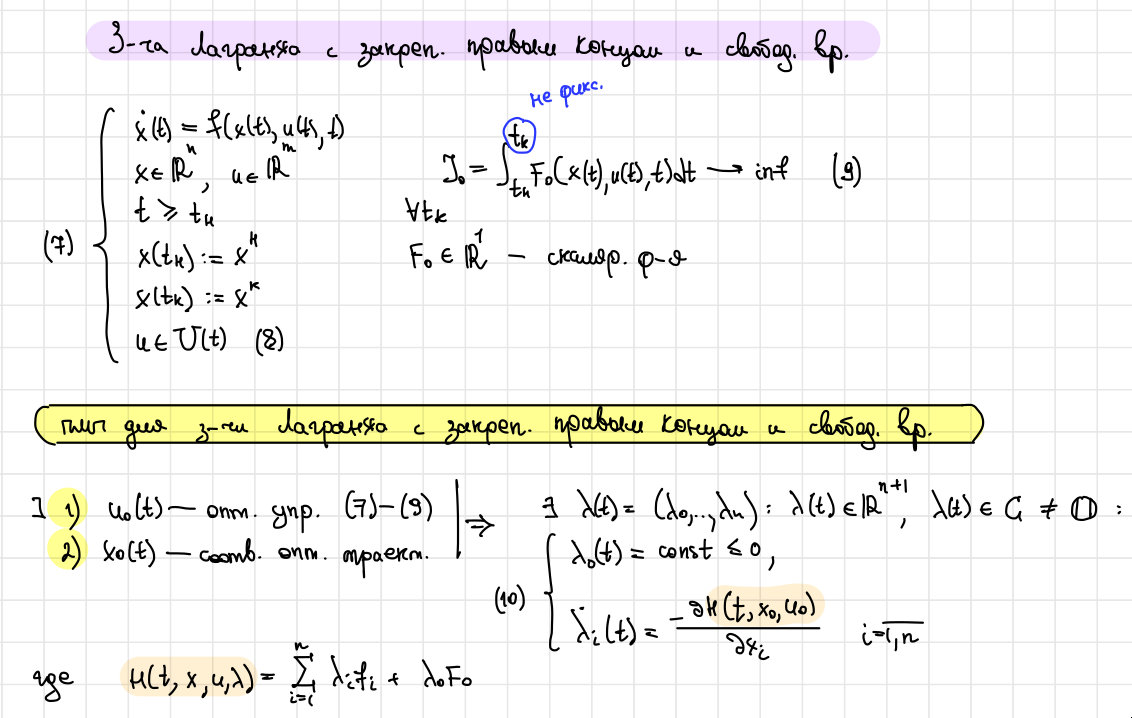 З-ча Лагранжа с закреп. правым концом и свобод. вр.
не фикс.
(7) { ẋ(t) = f(x(t), u(t), t)
x ∈ ℝⁿ, u ∈ ℝᵐ
t ⩾ tₙ
x(tₙ) := xᴴ
x(tₖ) := xᴷ
u ∈ U(t) (8)
J₀ = ∫_{tₙ}^{tₖ} F₀(x(t), u(t), t)dt → inf (9)
∀tₖ
F₀ ∈ ℝ¹ — скаляр. ф-я
ПМП для з-чи Лагранжа с закреп. правым концом и свобод. вр.
] 1) u₀(t) — опт. упр. (7)-(9)
2) x₀(t) — соотв. опт. траект.
⇒ ∃ λ(t) = (λ₀,..,λₙ) : λ(t) ∈ ℝⁿ⁺¹, λ(t) ∈ C ≠ 𝕆 :
(10) { λ₀(t) = const ≤ 0,
λ̇ᵢ(t) = -∂H(t, x₀, u₀) / ∂xᵢ i=1,n
где H(t, x, u, λ) = Σ_{i=1}^{n} λᵢfᵢ + λ₀F₀